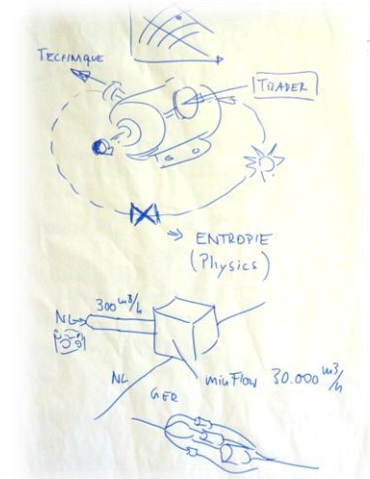 TECHNIQUE
TRADER
ENTROPIE
(Physics)
300 m3/h
NL
NL
min Flow 30.000 m3/h
GER